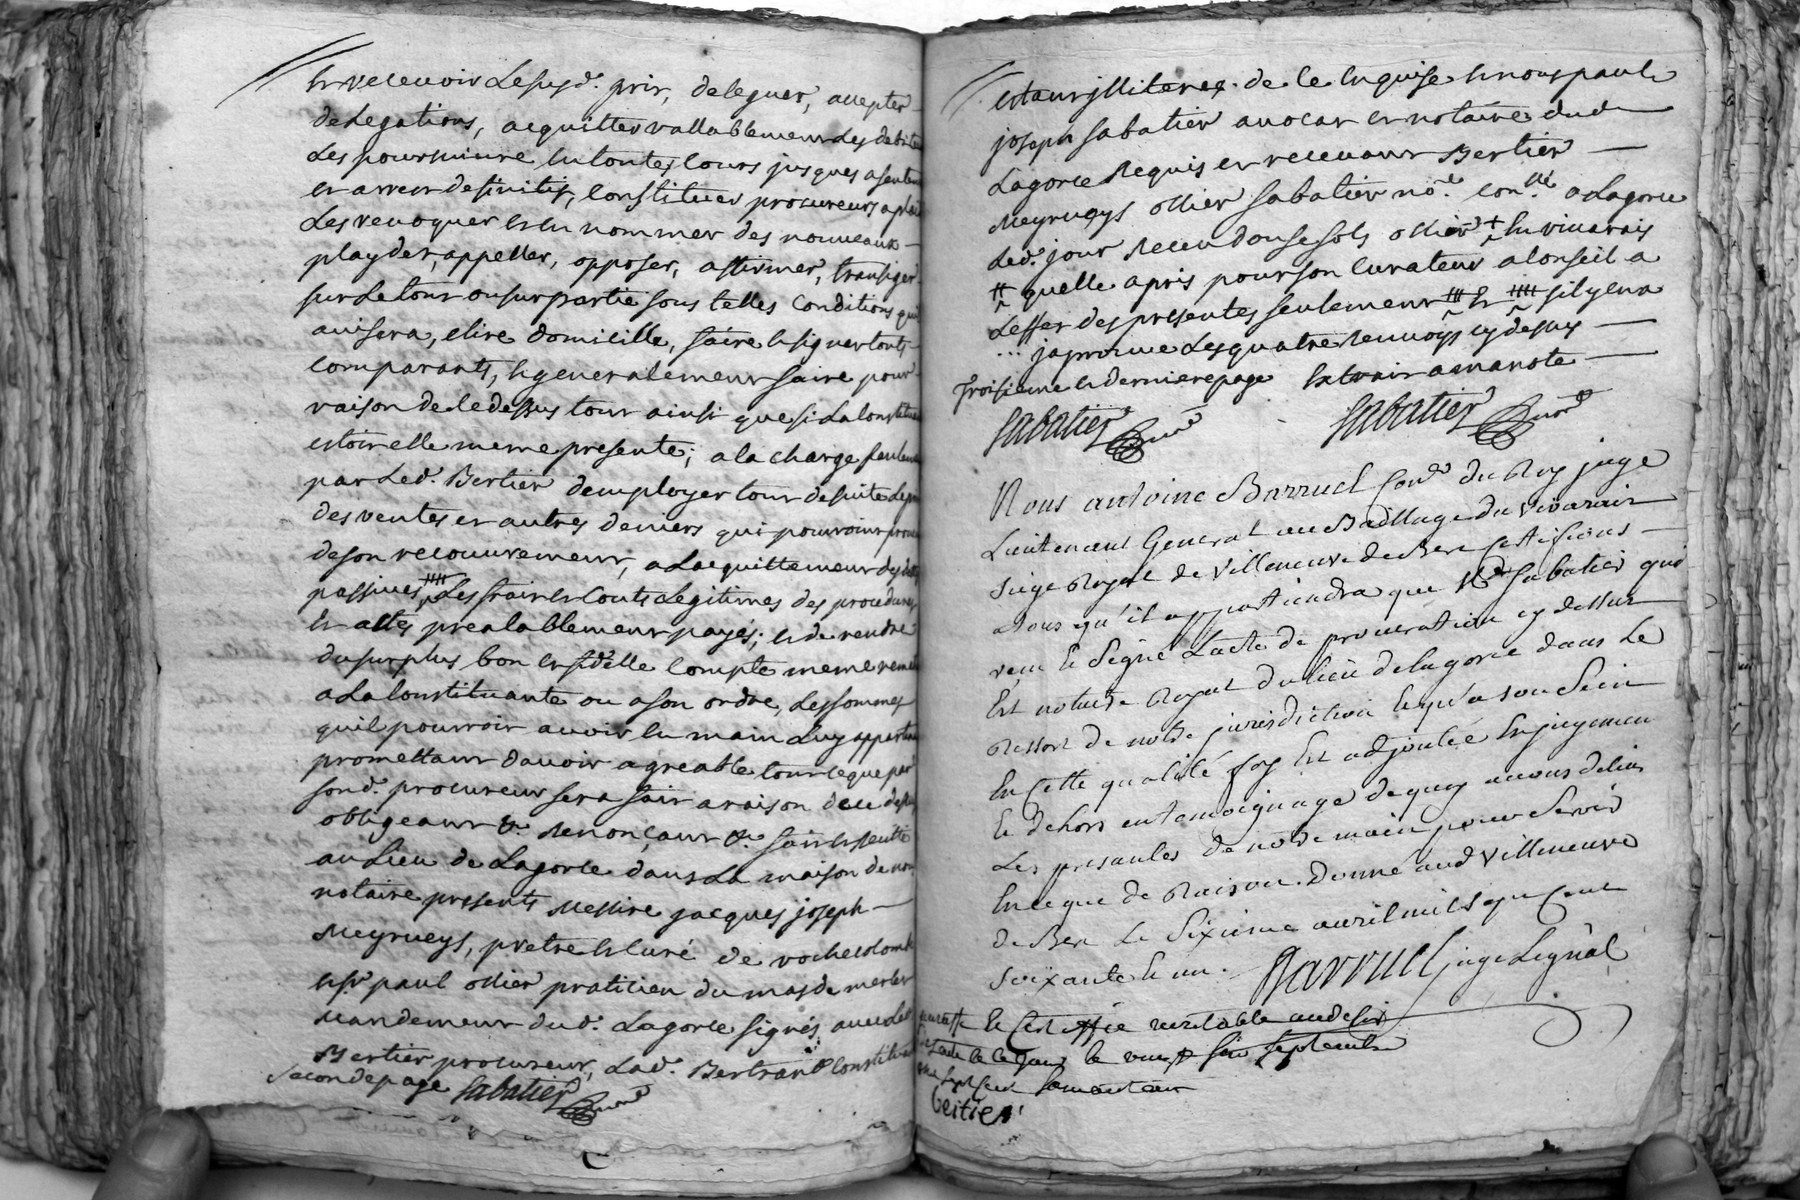 et recevoir lesusd. prix, deleguer, accepter
delegations, acquitter vallablement les debit
les poursuivre en toutes cours jusques a senten
et arrest definitif, constituer procureurs a pla
les revoquer et en nommer des nouveaux
playder, appeller, opposer, affirmer, transiger
sur le tout ou sur partie sous telles conditions qui
avisera, elire domicille, faire et signer touts
comparants, et generalement faire pour
raison de ce dessus tout ainsi que si la constitu
estoit elle meme presente; a la charge seulem
par led. Bertier demployer tout de suite le p
des ventes et autres deniers qui pourroint prov
de son recouvrement, a lacquittement des det
passives, les fraix et couts legitimes des procedures
et actes prealablement payés; et de rendre
du surplus bon et fidelle compte meme reme
a la constituante ou a son ordre, les sommes
quil pourroit avoir en main luy apparten
promettant davoir agreable tout ce que par
sond. procureur sera fait a raison de ce dess
obligeant &c. renonçant &c. fait et recitté
au lieu de Lagorce dans la maison de nous
notaire presents Messire jacques joseph
Meyrueys, pretre et curé de rochecolombe
et sr. paul ollier praticien du mas de merle
mandement dud. Lagorce signés avec led
Bertier procureur, lad. Bertrand constitua
seconde page Sabatier
estant illiteree. de ce enquise et nous paul
joseph sabatier avocat et notaire dud
Lagorce requis et recevant Bertier
Meyrueys ollier sabatier nore. con. a Lagorce
led. jour receu douse sols ollier + en vivarais
# quelle a pris pour son curateur a conseil a
leffet des presentes seulement et sil y en a
... japrouve les quatre renvoys cy dessus
troisieme et derniere page extrait a ma note
Sabatier Sabatier
Nous antoine Barruel Con. du Roy juge
Lieutenant General au Bailliage du Vivarais
siege Royal de Villeneuve de Berc Certifions
a tous qu'il appartiendra que Me Sabatier qui
reçu et signé Lacte de procuration cy dessus
Est notaire Royal du lieu de lagorce dans Le
Ressort de notre jurisdiction et qu'a son sein
En Cette qualité foy Est adjoutée En jugemen
et dehors en temoignage de quoy avons delivré
Les presantes de notre main pour servir
En ce que de Raison. Donné aud Villeneuve
de Berc Le Sixieme avril mil sept Cent
soixante et un. Barruel juge Legnal
et Certiffié veritable au desir
Lacte de ce jour le vingt six septembre
mil sept cent soixante un
Beitier